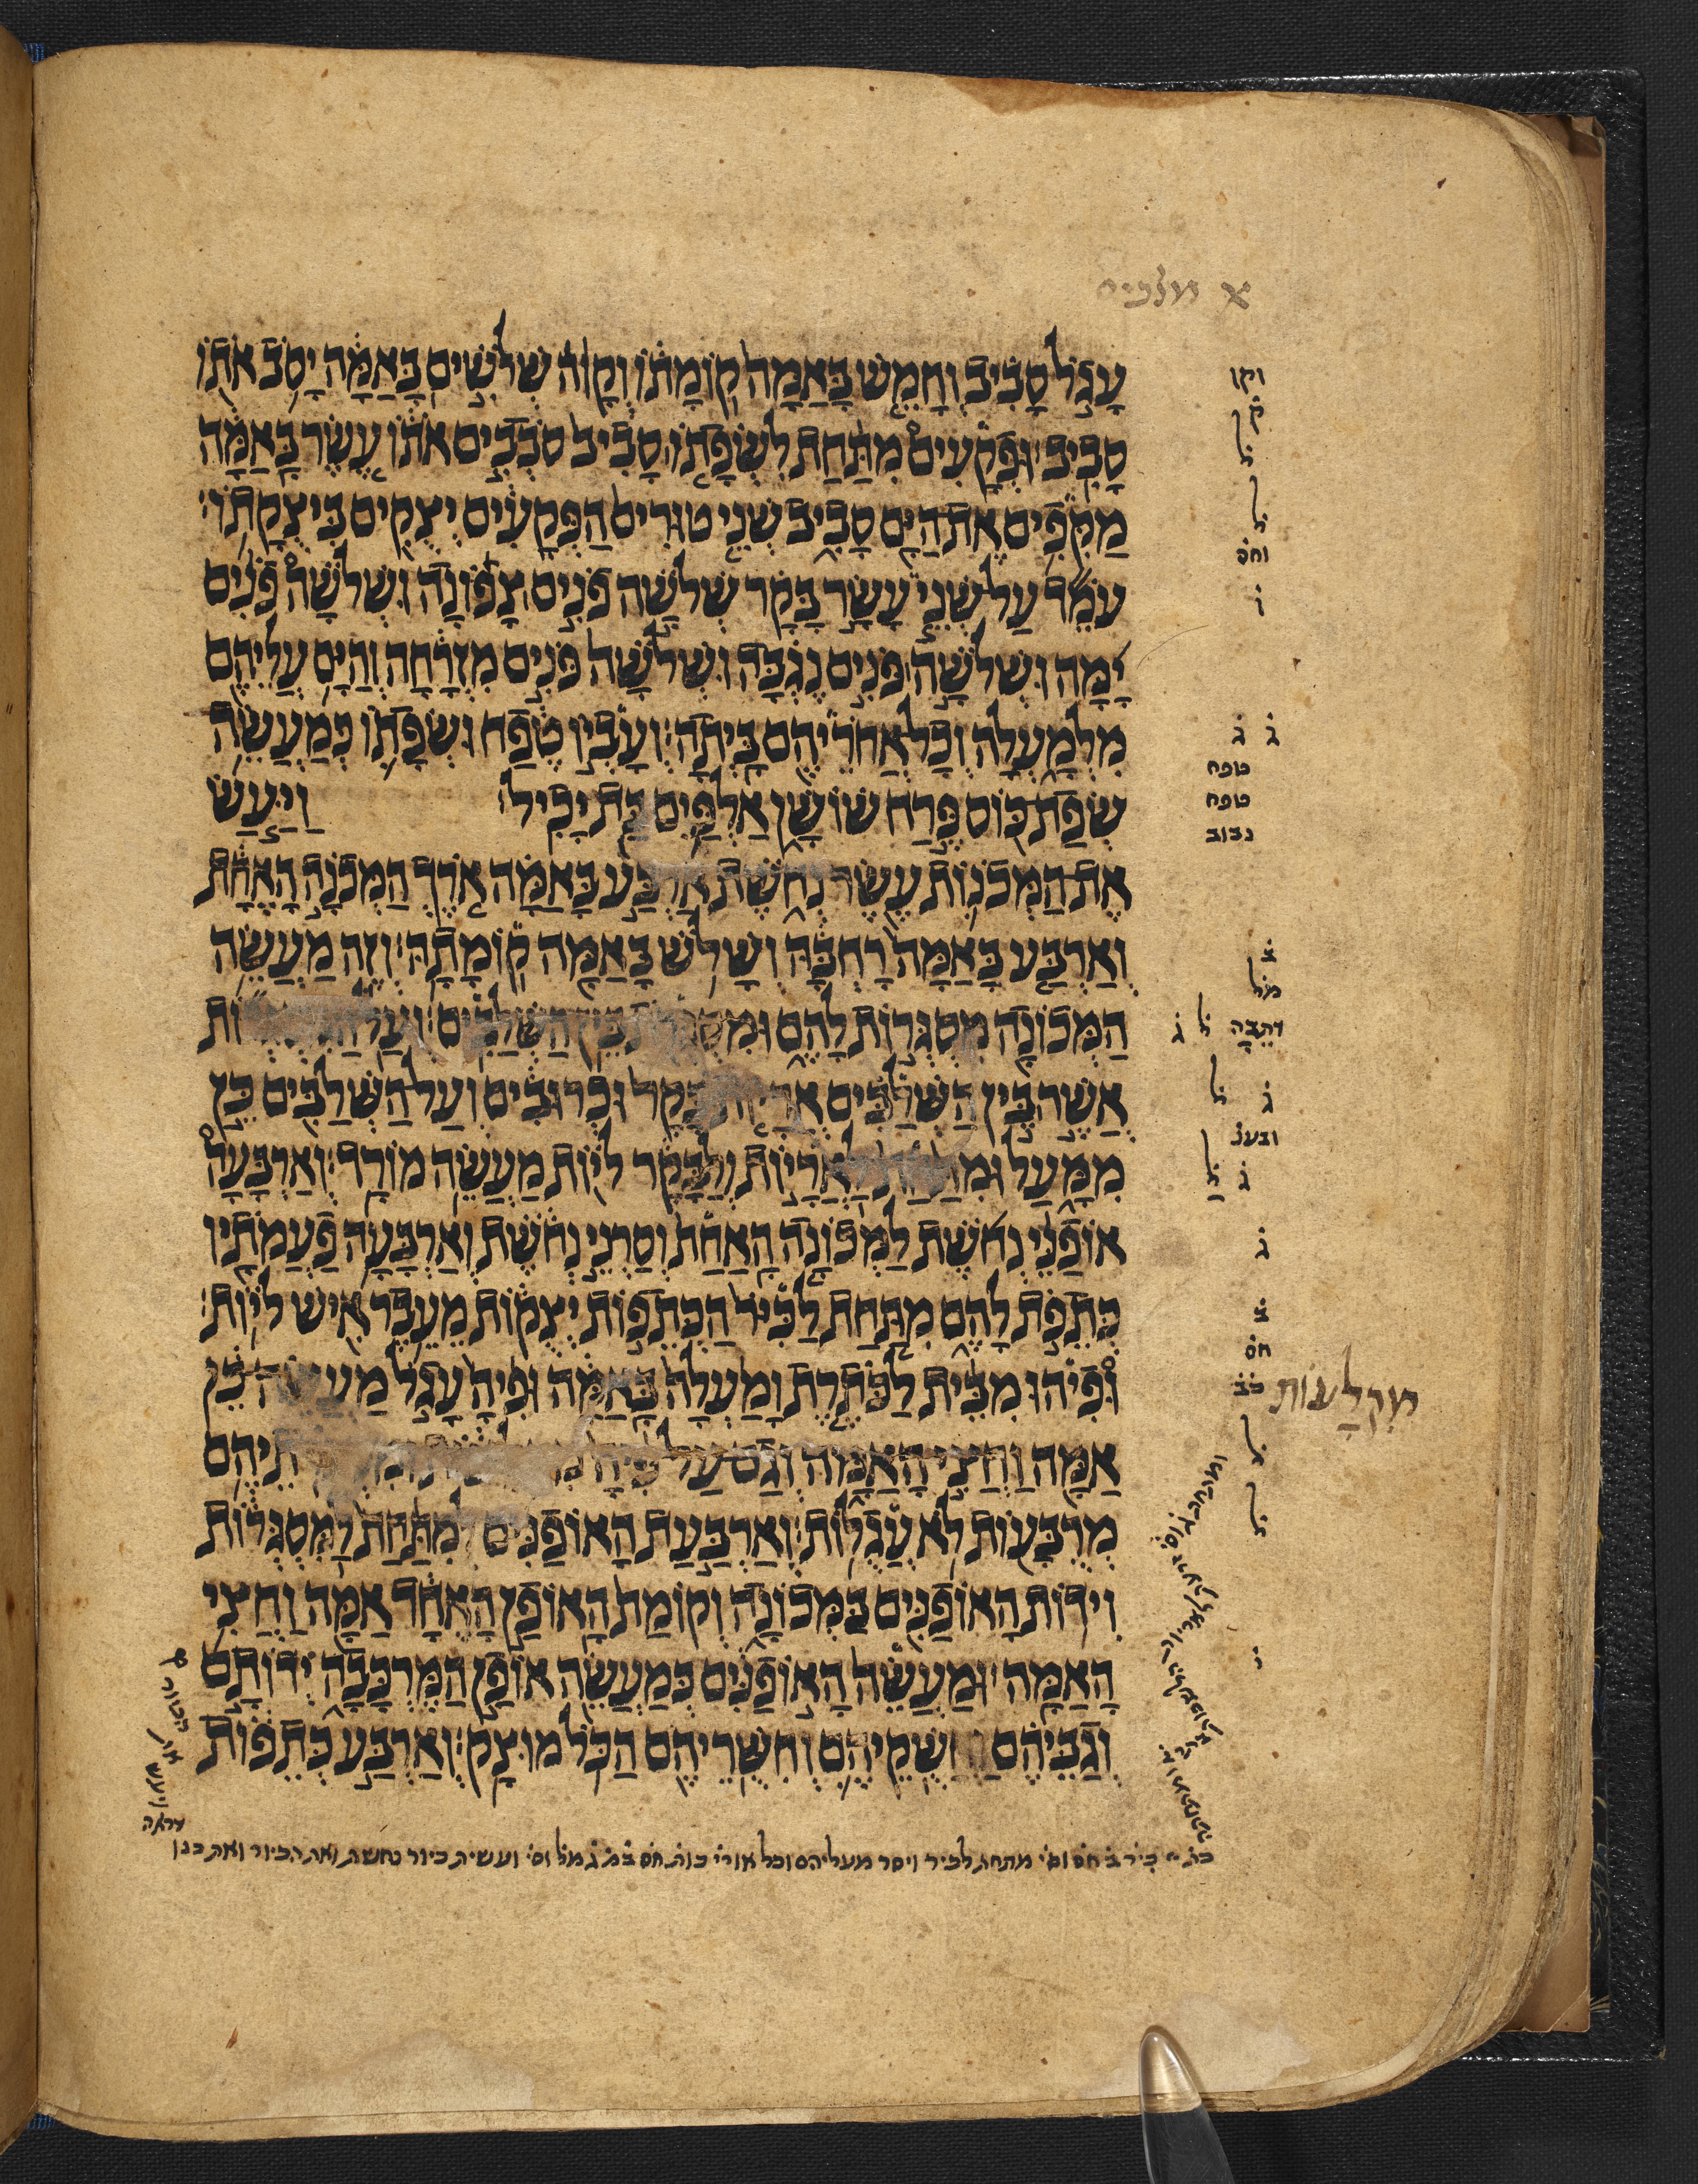 א מלכים
עָגֹל סָבִיב וְחָמֵשׁ בָּאַמָּה קוֹמָתוֹ וְקָוֹה שְׁלֹשִׁים בָּאַמָּה יָסֹב אֹתוֹ
סָבִיב׃ וּפְקָעִים מִתַּחַת לִשְׂפָתוֹ סָבִיב סֹבְבִים אֹתוֹ עֶשֶׂר בָּאַמָּה
מַקִּפִים אֶת הַיָּם סָבִיב שְׁנֵי טוּרִים הַפְּקָעִים יְצֻקִים בִּיצֻקָתוֹ׃
עֹמֵד עַל שְׁנֵי עָשָׂר בָּקָר שְׁלֹשָׁה פֹנִים צָפוֹנָה וּשְׁלֹשָׁה פֹנִים
יָמָּה וּשְׁלֹשָׁה פֹּנִים נֶגְבָּה וּשְׁלֹשָׁה פֹּנִים מִזְרָחָה וְהַיָּם עֲלֵיהֶם
מִלְמָעְלָה וְכָל אֲחֹרֵיהֶם בָּיְתָה׃ וְעָבְיוֹ טֶפַח וּשְׂפָתוֹ כְּמַעֲשֵׂה
שְׂפַת כּוֹס פֶּרַח שׁוֹשָׁן אַלְפַּיִם בַּת יָכִיל׃ וַיַּעַשׂ
אֶת הַמְּכֹנוֹת עֶשֶׂר נְחֹשֶׁת אַרְבַּע בָּאַמָּה אֹרֶךְ הַמְּכֹנָה הָאֶחָת
וְאַרְבַּע בָּאַמָּה רָחְבָּהּ וְשָׁלֹשׁ בָּאַמָּה קוֹמָתָהּ׃ וְזֶה מַעֲשֵׂה
הַמְּכוֹנָה מִסְגְּרוֹת לָהֶם בֵּין הַשְׁלַבִּים׃
אֲשֶׁר בֵּין הַשְׁלַבִּים וּכְרוּבִים וְעַל הַשְׁלַבִּים כֵּן
מִמָּעַל לַאֲרָיוֹת וְלַבָּקָר לֹיוֹת מַעֲשֵׂה מוֹרָד׃ וְאַרְבָּעָה
אוֹפַנֵּי נְחֹשֶׁת לַמְּכוֹנָה הָאַחַת וְסַרְנֵי נְחֹשֶׁת וְאַרְבָּעָה פַעֲמֹתָיו
כְּתֵפֹת לָהֶם מִתַּחַת לַכִּיֹּר הַכְּתֵפוֹת יְצֻקוֹת מֵעֵבֶר אִישׁ לֹיוֹת׃
וּפִיהוּ מִבֵּית לַכֹּתֶרֶת וָמַעְלָה בָּאַמָּה וּפִיהָ עָגֹל כֵן
אַמָּה וַחֲצִי הָאַמָּה וְגַם עַל פִּיהָ
מְרֻבָּעוֹת לֹא עֲגֻלּוֹת׃ וְאַרְבַּעַת הָאוֹפַנִּים לְמִתַּחַת לַמִּסְגְּרוֹת
וִידוֹת הָאוֹפַנִּים בַּמְּכוֹנָה וְקוֹמַת הָאוֹפַן הָאֶחָד אַמָּה וַחֲצִי
הָאַמָּה׃ וּמַעֲשֵׂה הָאוֹפַנִּים כְּמַעֲשֵׂה אוֹפַן הַמֶּרְכָּבָה יְדוֹתָם
וְגַבֵּיהֶם וְחִשֻּׁקֵיהֶם וְחִשֻּׁרֵיהֶם הַכֹּל מוּצָק׃ וְאַרְבַּע כְּתֵפוֹת
וקו
ל
ל
וחס
ו
ג ג
טפח
טפח
נבוב
מל
ל ג
ג
ל
ג
ל
ג
חס
מִקְלָעוֹת
ל
ל
מתחת לכיר ויסר מעליהם וכל אורי ועשית כיור נחשת ואת הכיור ואת כנו